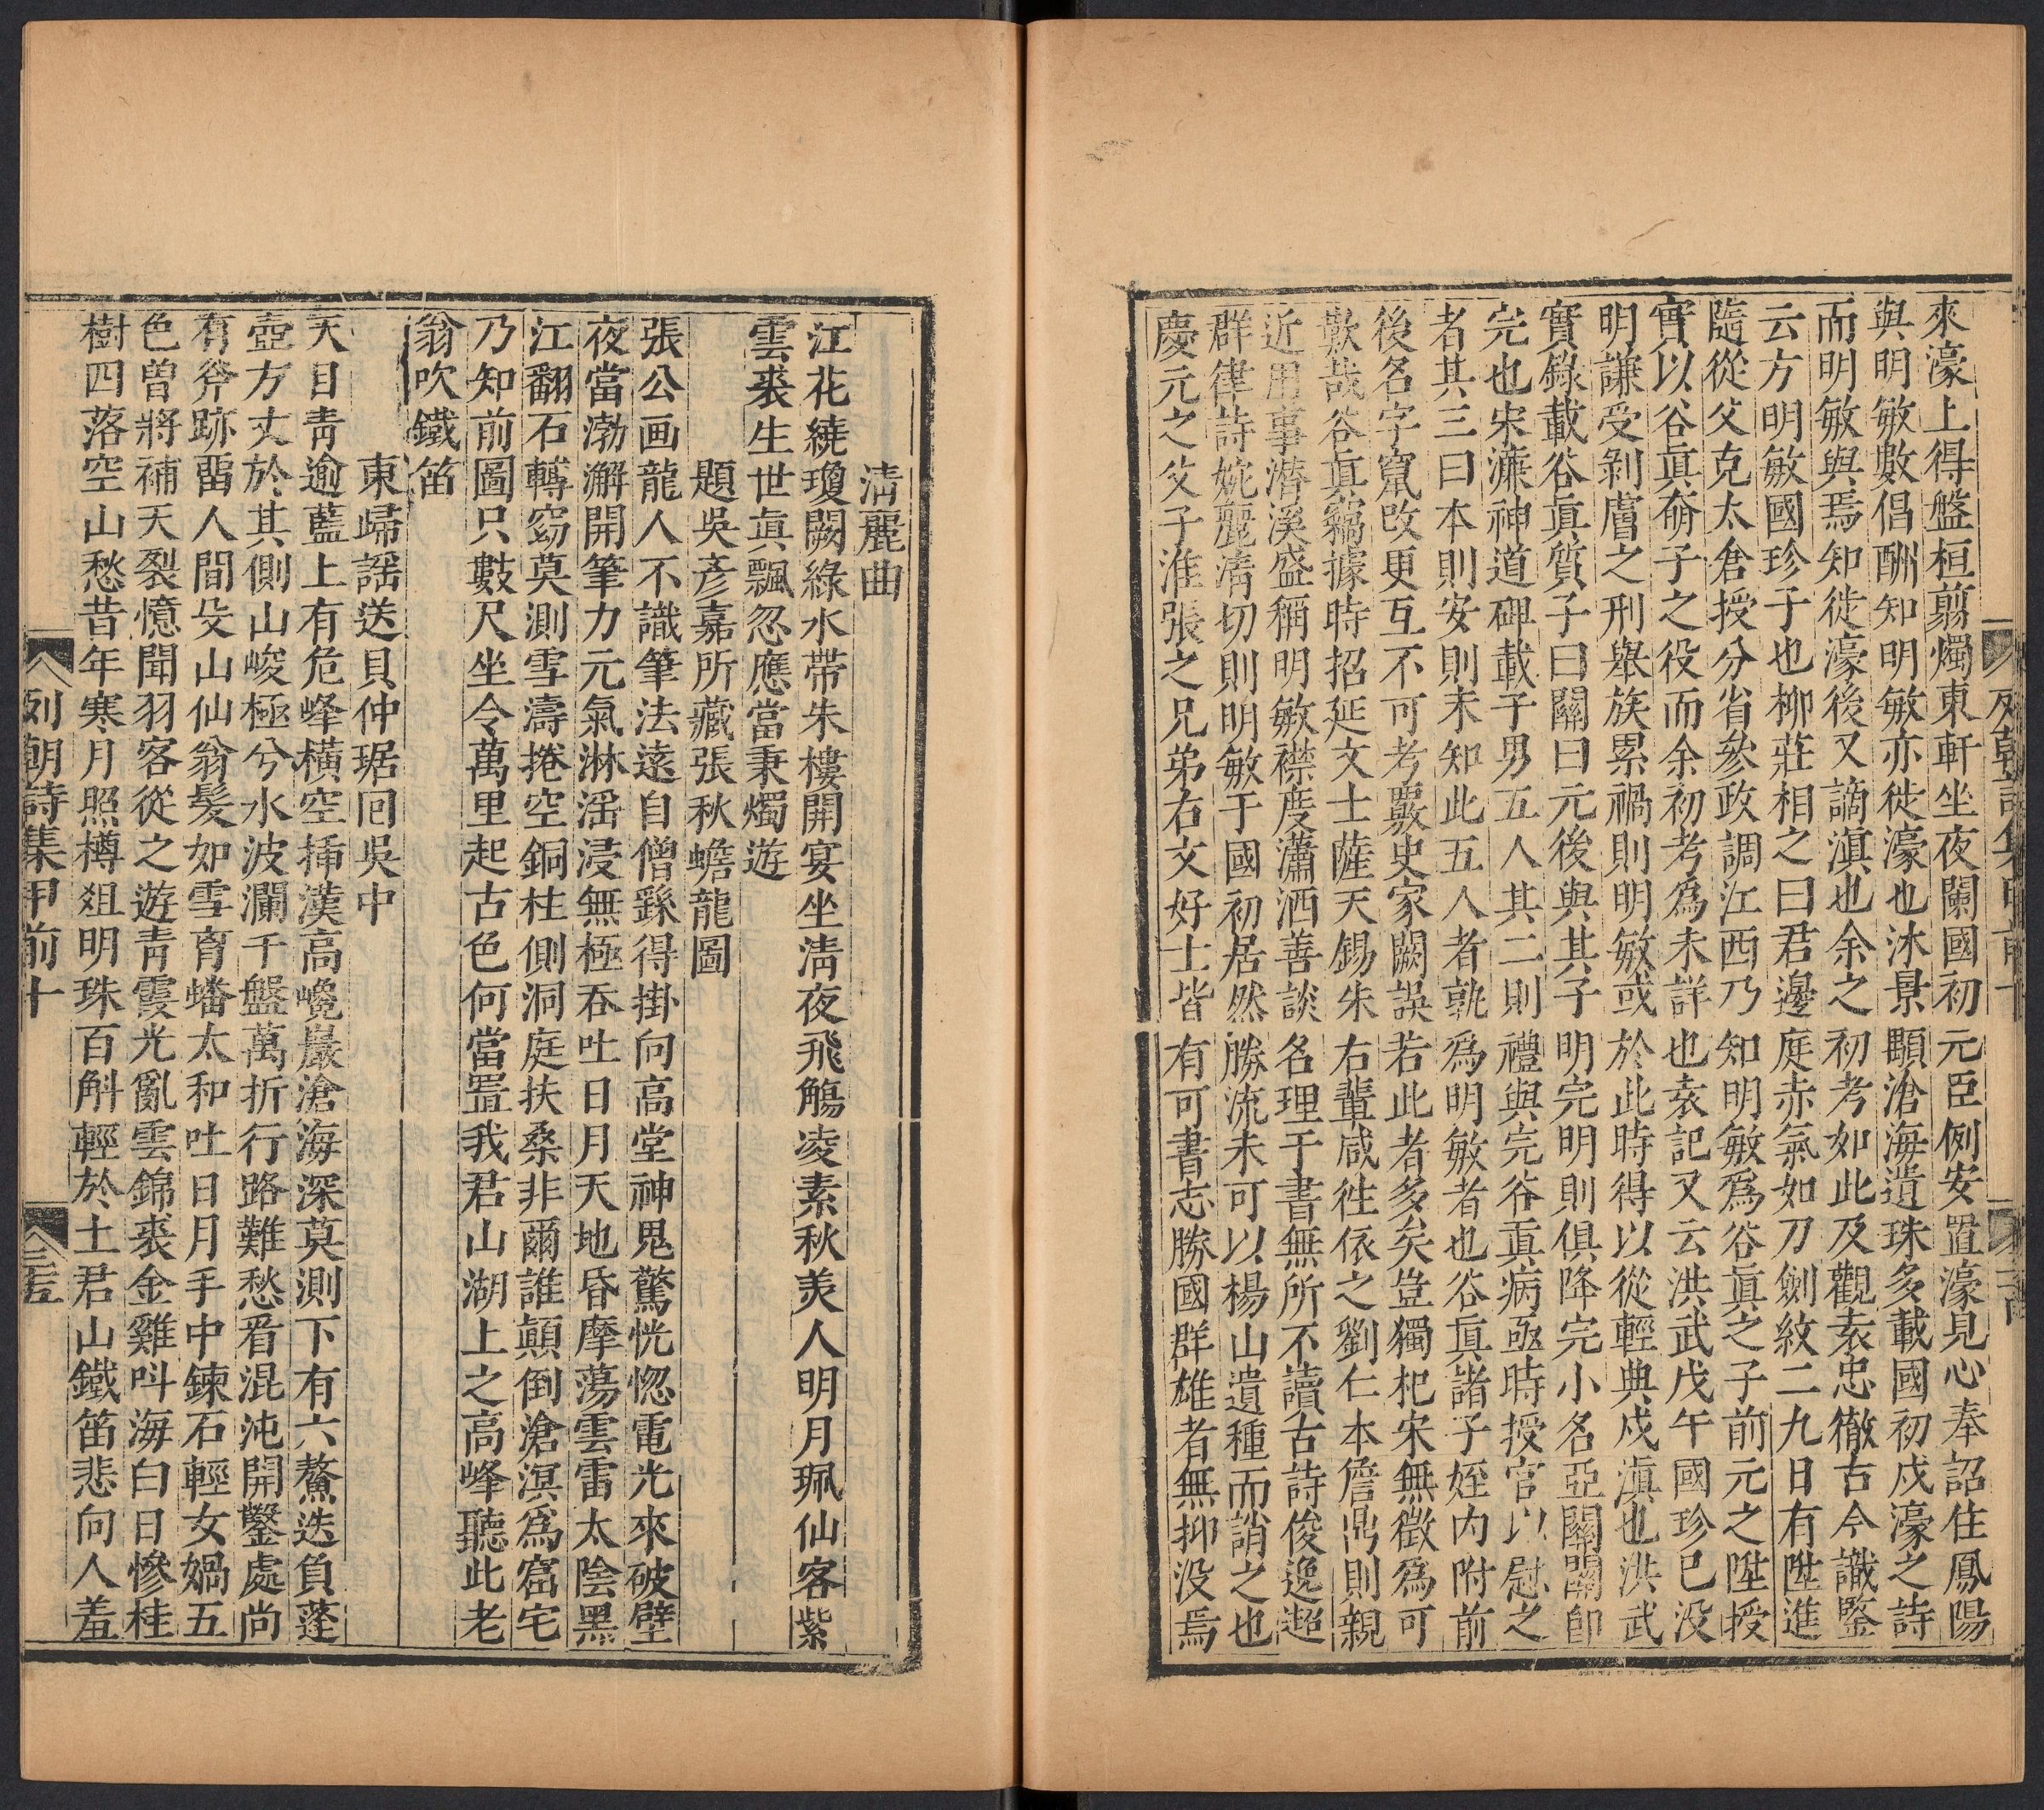 來濠上得盤桓翦燭東軒坐夜闌國初元臣例安置濠見心奉詔住鳳陽
與明敏數倡酬知明敏亦徙濠也沐景顒滄海遺珠多載國初戍濠之詩
而明敏與焉知徙濠後又謫滇也余之初考如此及觀袁忠徹古今識鑒
云方明敏國珍子也柳莊相之曰君邊庭赤氣如刀劍紋二九日有陞進
隨從父克太倉授分省參政調江西乃知明敏爲谷眞之子前元之陞授
實以谷眞奇子之役而余初考爲未詳也袁記又云洪武戊午國珍已没
明謙受剝膚之刑舉族累禍則明敏或於此時得以從輕典戍滇也洪武
實錄載谷眞質子曰關曰元後與其子明完明則俱降完小名亞關關卽
完也宋濂神道碑載子男五人其二則禮與完谷眞病亟時授官以慰之
者其三曰本則安則未知此五人者孰爲明敏者也谷眞諸子姪内附前
後名字竄改更互不可考覈史家闕誤若此者多矣豈獨杞宋無徵爲可
歎哉谷眞竊據時招延文士薩天錫朱右輩咸往依之劉仁本詹鼎則親
近用事潛溪盛稱明敏襟度瀟洒善談名理于書無所不讀古詩俊逸超
群律詩婉麗淸切則明敏于國初居然勝流未可以楊山遺種而誚之也
慶元之父子淮張之兄弟右文好士皆有可書志勝國群雄者無抑没焉
淸麗曲
江花繞瓊闕綠水帶朱樓開宴坐淸夜飛觴凌素秋美人明月珮仙客紫
雲裘生世眞飄忽應當秉燭遊
題吳彥嘉所藏張秋蟾龍圖
張公画龍人不識筆法遠自僧繇得掛向高堂神鬼驚恍惚電光來破壁
夜當渤澥開筆力元氣淋滛浸無極吞吐日月天地昏摩蕩雲雷太陰黑
江翻石轉窈莫測雪濤捲空銅柱側洞庭扶桑非爾誰顛倒滄溟爲窟宅
乃知前圖只數尺坐令萬里起古色何當置我君山湖上之高峰聽此老
翁吹鐵笛
東歸謡送貝仲琚囘吳中
天目靑逾藍上有危峰橫空揷漢高巉巖滄海深莫測下有六鰲迭負蓬
壺方丈於其側山峻極兮水波瀾千盤萬折行路難愁看混沌開鑿處尚
有斧跡畱人間殳山仙翁髮如雪育蟠太和吐日月手中鍊石輕女媧五
色曾將補天裂憶聞羽客從之遊靑霞光亂雲錦裘金雞呌海白日慘桂
樹四落空山愁昔年寒月照樽爼明珠百斛輕於土君山鐵笛悲向人羞
列朝詩集甲前十
三五